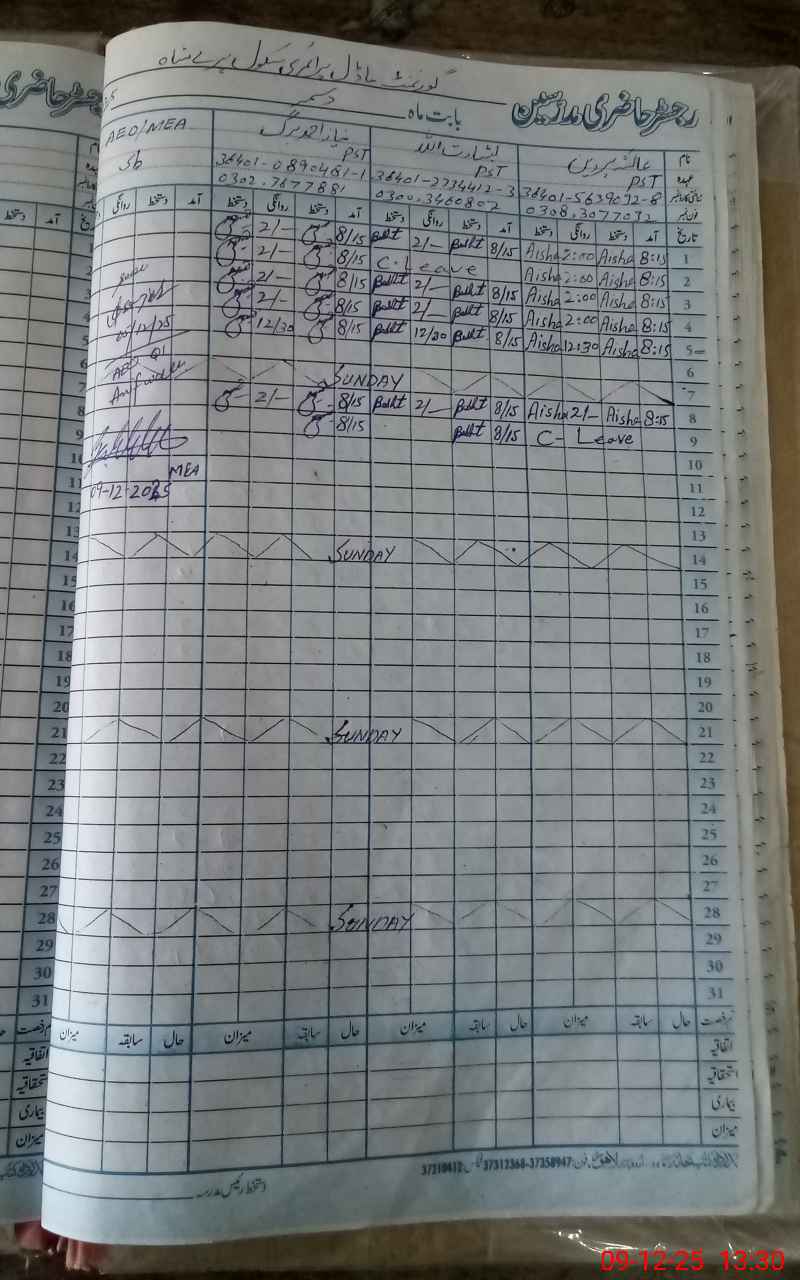 گورنمنٹ ماڈل پرائمری سکول پیرے شاہ
رجسٹر حاضری مدرسین بابت ماہ دسمبر
نام عائشہ پروین بشارت اللہ نیاز احمد AEO/MEA
عہدہ PST PST PST
36401-5639032-8 36401-2734412-3 36401-0890481-1
0308.3077032 0300.3460802 0302.7677881
تاریخ آمد دستخط روانگی دستخط آمد دستخط روانگی دستخط آمد دستخط روانگی دستخط آمد دستخط روانگی دستخط
1 8:15 Aisha 2:00 Aisha 8/15 2/- 8/15 2/-
2 8:15 Aisha 2:00 Aisha C-Leave 8/15 2/-
3 8:15 Aisha 2:00 Aisha 8/15 2/- 8/15 2/-
4 8:15 Aisha 2:00 Aisha 8/15 2/- 8/15 2/-
5 8:15 Aisha 12:30 Aisha 8/15 12/30 8/15 12/30
05/12/25
6
7 SUNDAY
8 8:15 Aisha 2/- Aisha 8/15 2/- 8/15 2/-
9 C- Leave 8/15 8/15
10
MEA
11
09-12-2025
12
13
14 SUNDAY
15
16
17
18
19
20
21 SUNDAY
22
23
24
25
26
27
28 SUNDAY
29
30
31
حال سابقہ میزان حال سابقہ میزان حال سابقہ میزان حال سابقہ میزان
اتفاقیہ
استحقاقیہ
بیماری
میزان
37310412 37312368-37358947
دستخط رئیس مدرسہ
09-12-25 13:30